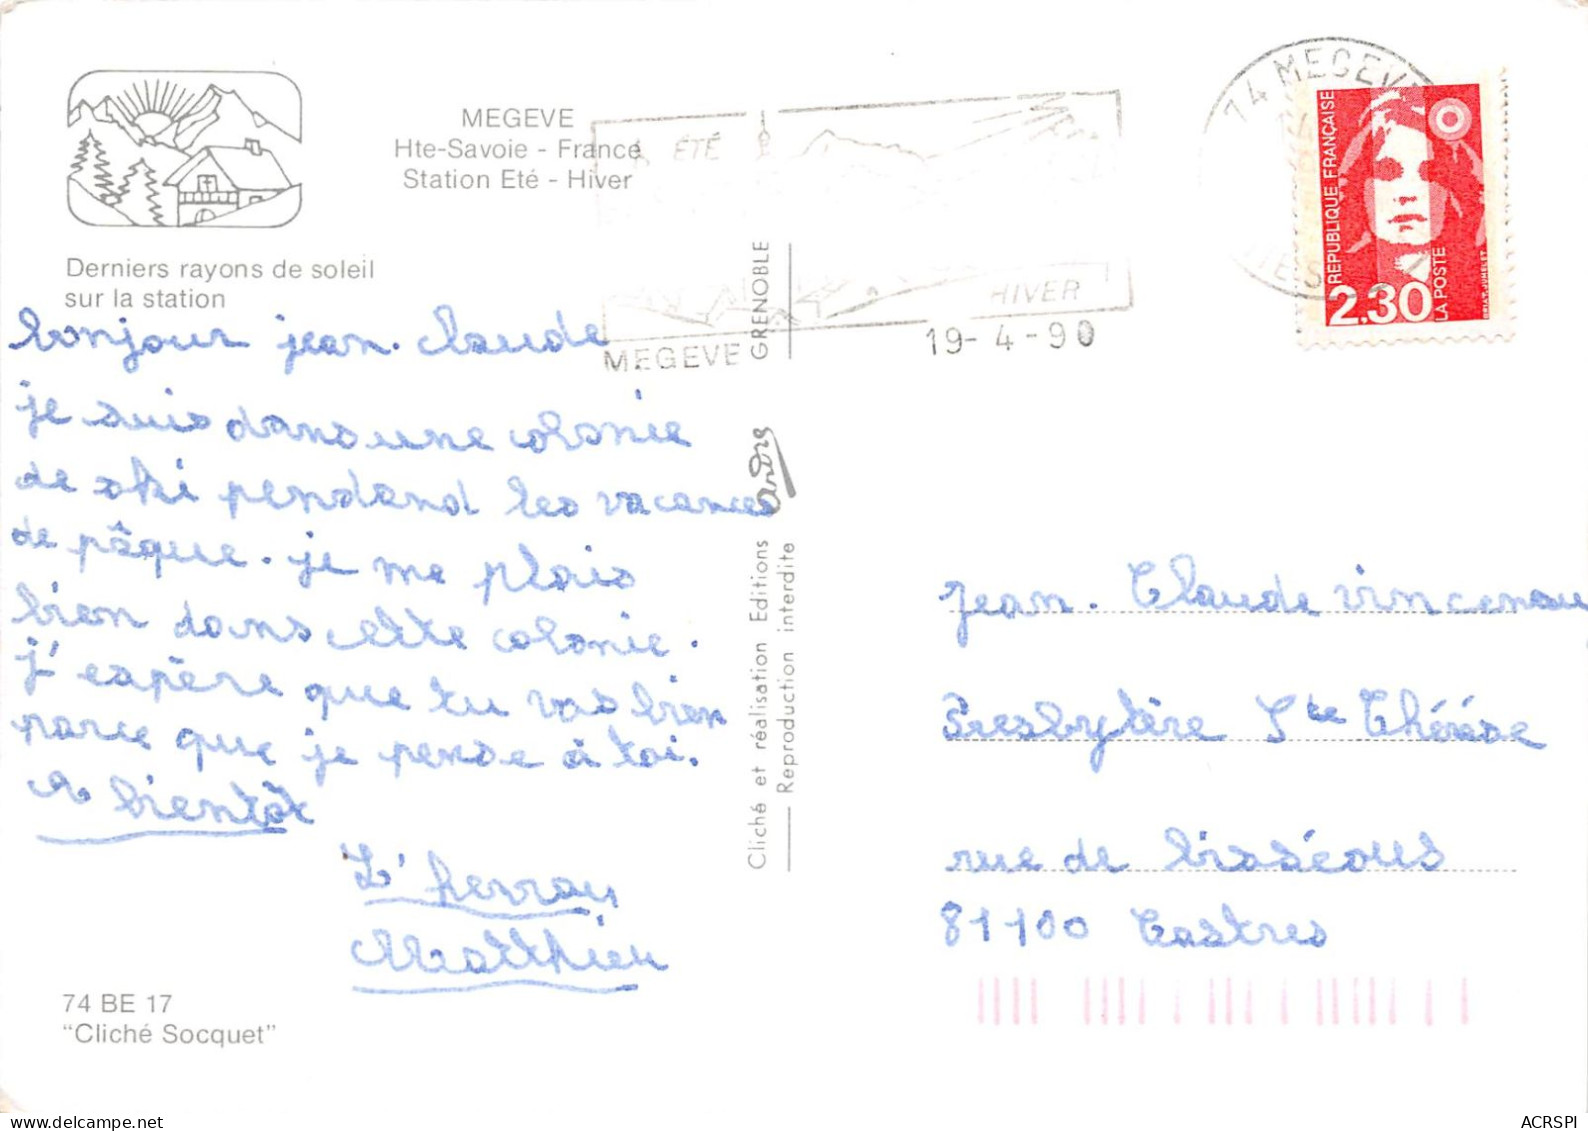 MEGEVE
Hte-Savoie - France
Station Eté - Hiver
Derniers rayons de soleil
sur la station
bonjour jean-claude
je suis dans une colonie
de ski pendand les vacances
de pâque. je me plais
bien dans cette colonie.
j'espère que tu vas bien
parce que je pense à toi.
A bientôt
L'herrou
Matthieu
74 BE 17
“Cliché Socquet”
ÉTÉ
HIVER
MEGEVE
19-4-90
GRENOBLE
andré
Cliché et réalisation Editions
Reproduction interdite
74 MEGEVE
RÉPUBLIQUE FRANÇAISE
2,30
LA POSTE
BRIAT-JUMELET
jean-Claude vincenau
Presbytère Ste Thérèse
rue de bisséous
81100 Castres
ACRSPI